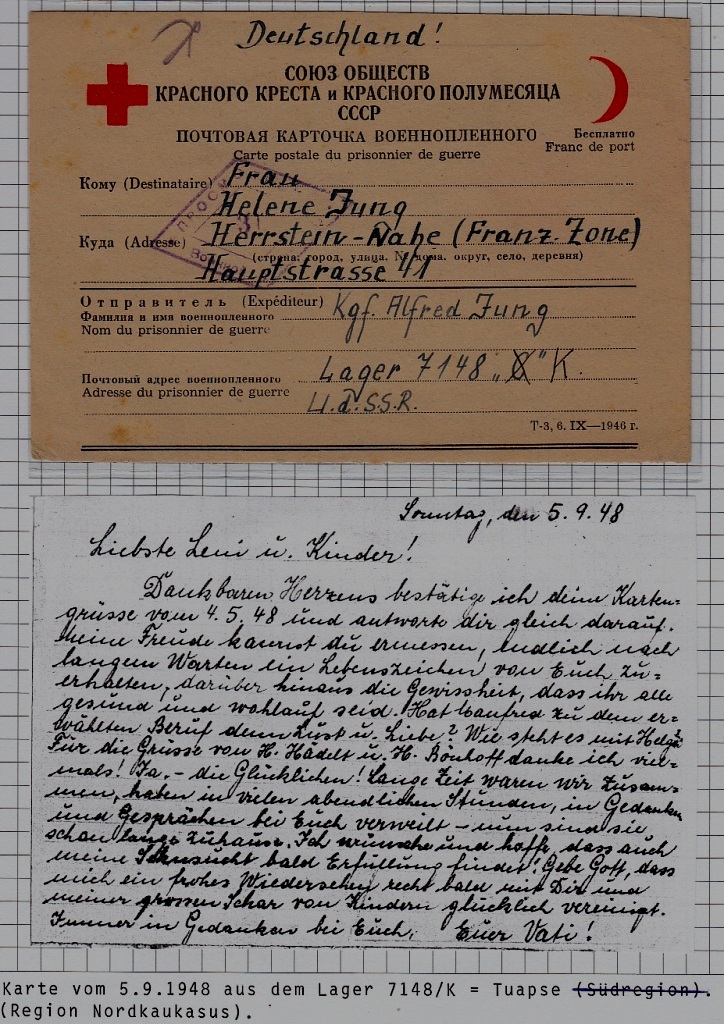 Deutschland!
СОЮЗ ОБЩЕСТВ
КРАСНОГО КРЕСТА и КРАСНОГО ПОЛУМЕСЯЦА
СССР
ПОЧТОВАЯ КАРТОЧКА ВОЕННОПЛЕННОГО
Carte postale du prisonnier de guerre
Бесплатно
Franc de port
Кому (Destinataire) Frau
Helene Jung
Куда (Adresse) Herrstein-Nahe (Franz. Zone)
(страна, город, улица, № дома, округ, село, деревня)
Hauptstrasse 41
Отправитель (Expéditeur) Kgf. Alfred Jung
Фамилия и имя военнопленного
Nom du prisonnier de guerre
Почтовый адрес военнопленного Lager 7148 "K.
Adresse du prisonnier de guerre U.d.S.S.R.
Т-3, 6. IX—1946 г.
Sonntag, den 5.9.48
Liebste Leni u. Kinder!
Dankbaren Herzens bestätige ich deine Karten-
grüsse vom 4.5.48 und antworte dir gleich darauf.
Meine Freude kannst du ermessen, endlich nach
langem Warten ein Lebenszeichen von Euch zu-
erhalten, darüber hinaus die Gewissheit, dass ihr alle
gesund und wohlauf seid. Hat Manfred zu dem er-
wählten Beruf denn Lust u. Liebe? Wie steht es mit Helga?
Für die Grüsse von H. Hädelt u. H. Bönhoff danke ich viel-
mals! Ja, - die Glücklichen! Lange Zeit waren wir zusam-
men, haben in vielen abendlichen Stunden, in Gedanken
und Gesprächen bei Euch verweilt - nun sind sie
schon lange zuhause. Ich wünsche und hoffe, dass auch
meine Sehnsucht bald Erfüllung findet! Gebe Gott, dass
mich ein frohes Wiedersehen recht bald mit Dir und
meiner grossen Schar von Kindern glücklich vereinigt.
Immer in Gedanken bei Euch, Euer Vati!
Karte vom 5.9.1948 aus dem Lager 7148/K = Tuapse (Südregion).
(Region Nordkaukasus).